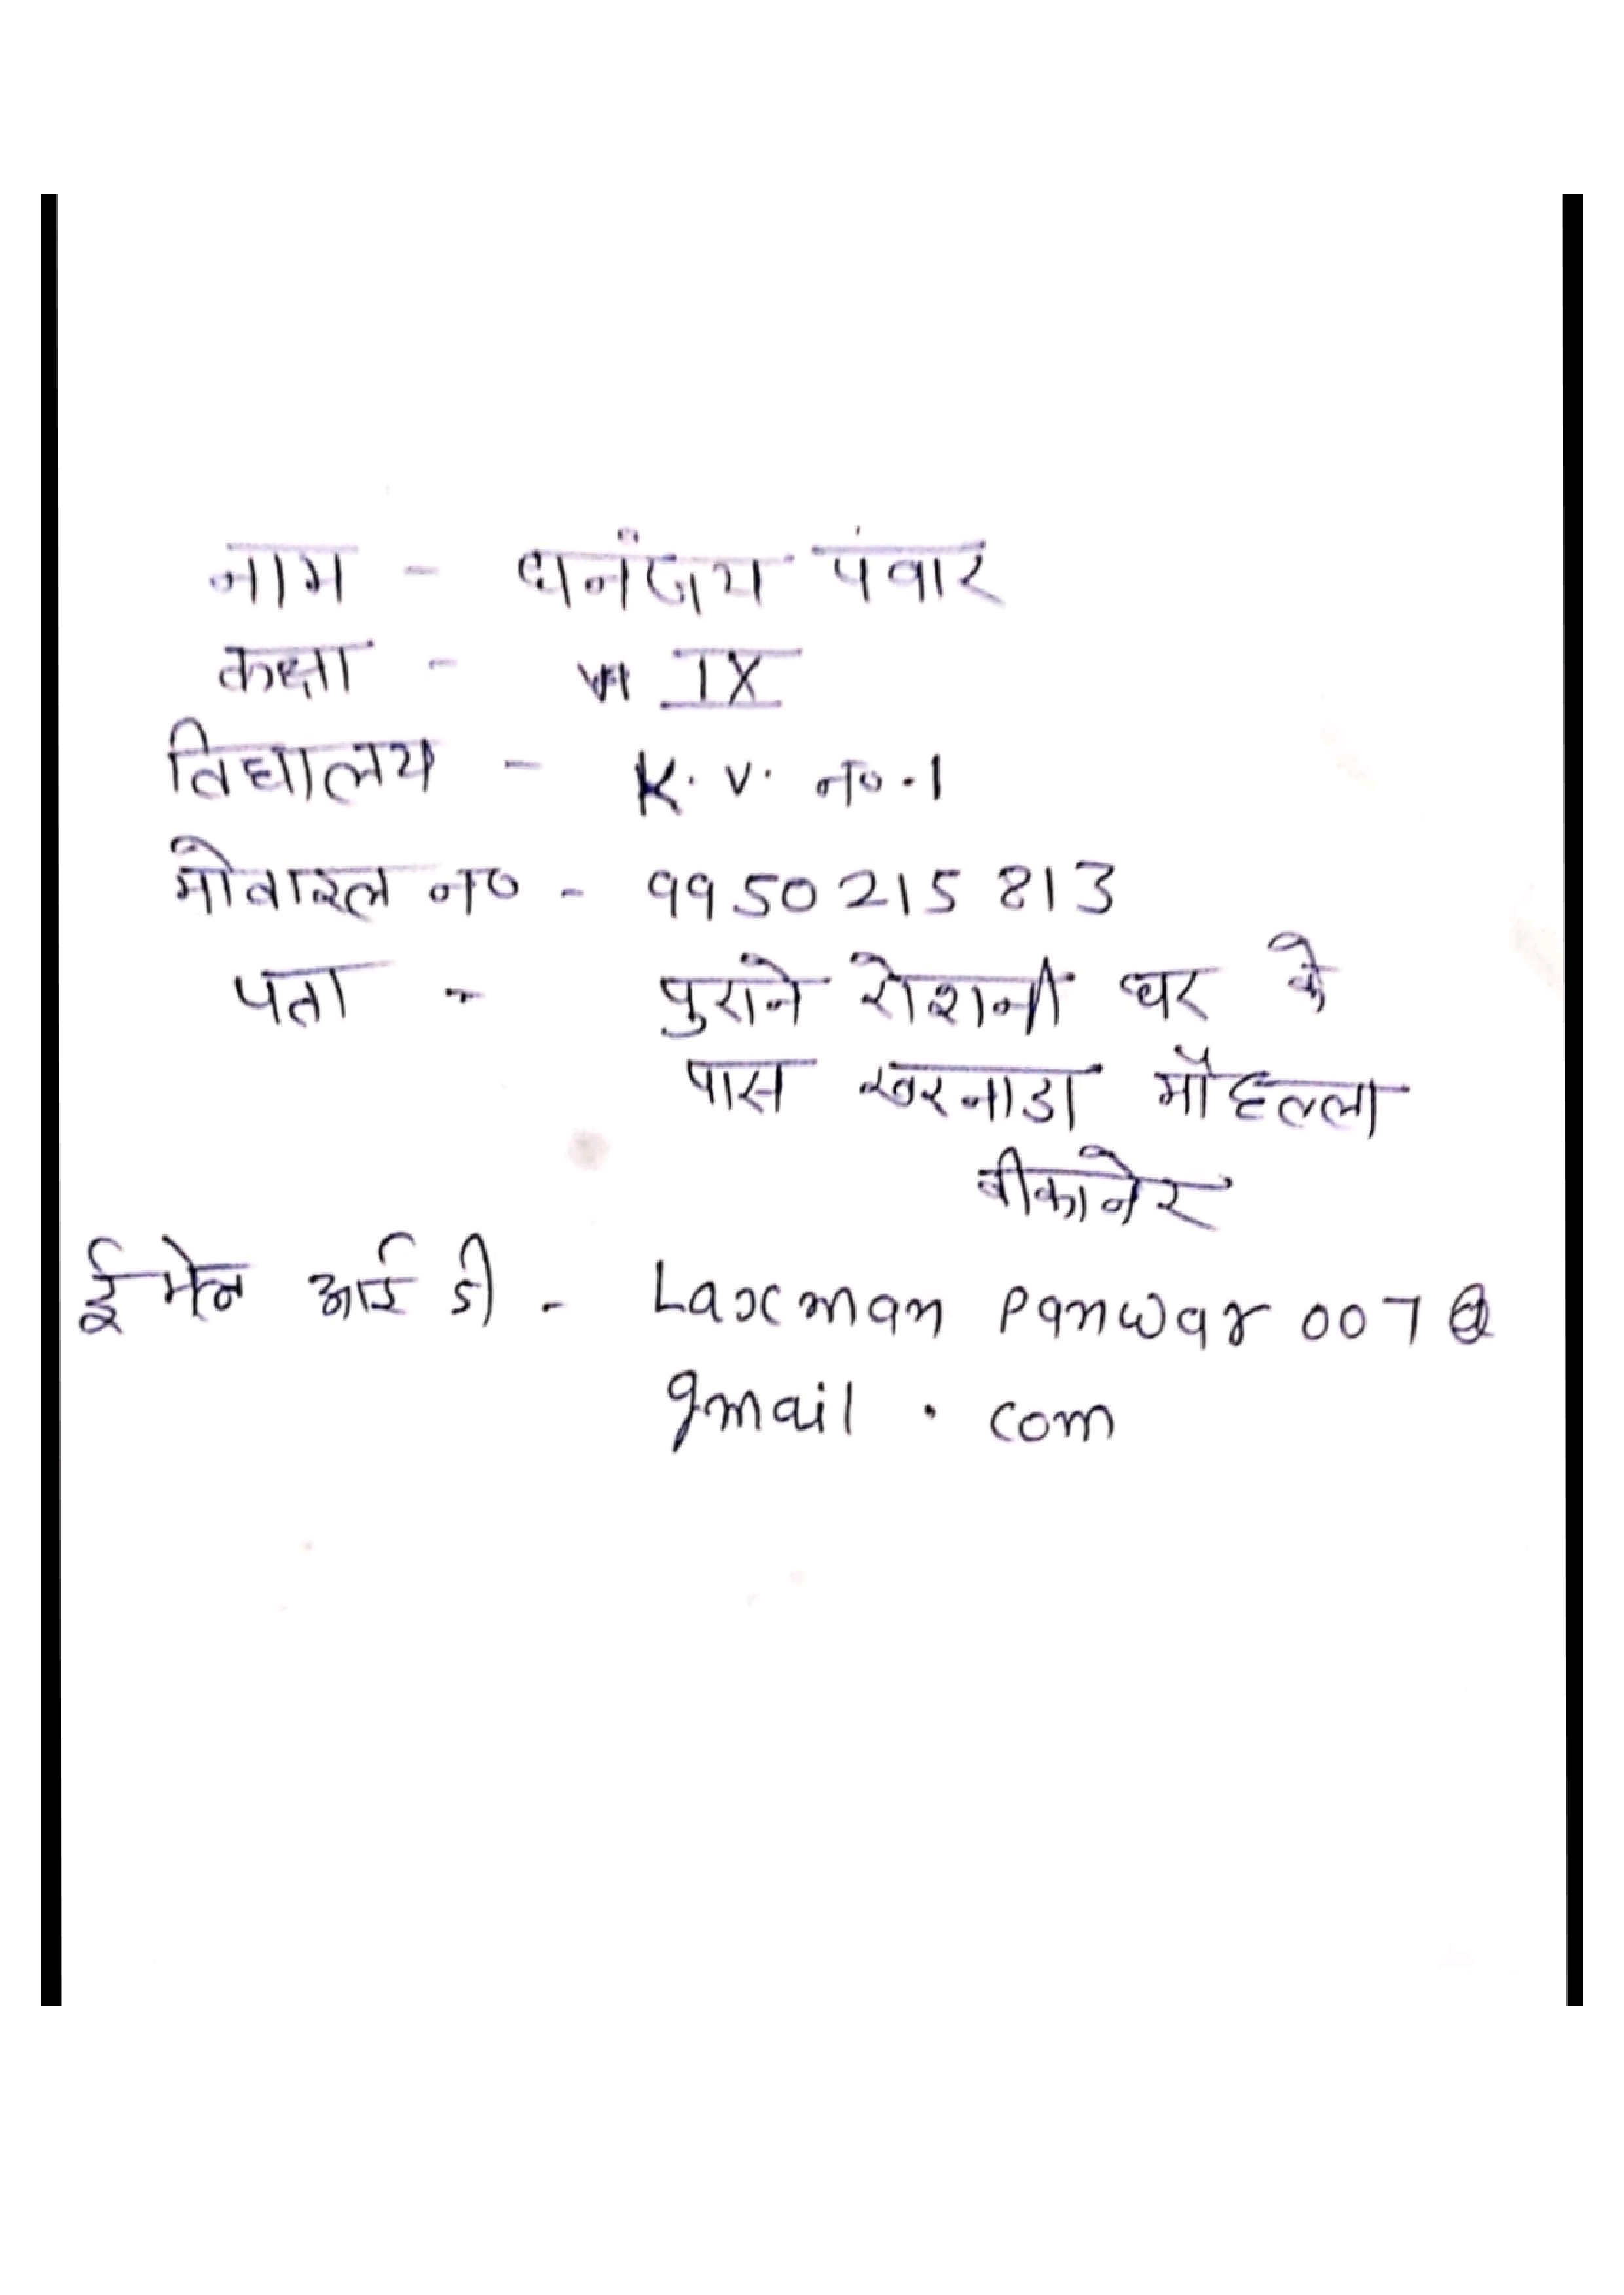 नाम - धनंजय पंवार
कक्षा - IX
विद्यालय - K.V. न०.1
मोबाइल न० - 9950215813
पता - पुराने रोशनी घर के
पास खरनाडा मौहल्ला
बीकानेर
ई मेल आई डी - Laxman Panwar 007@
gmail . com